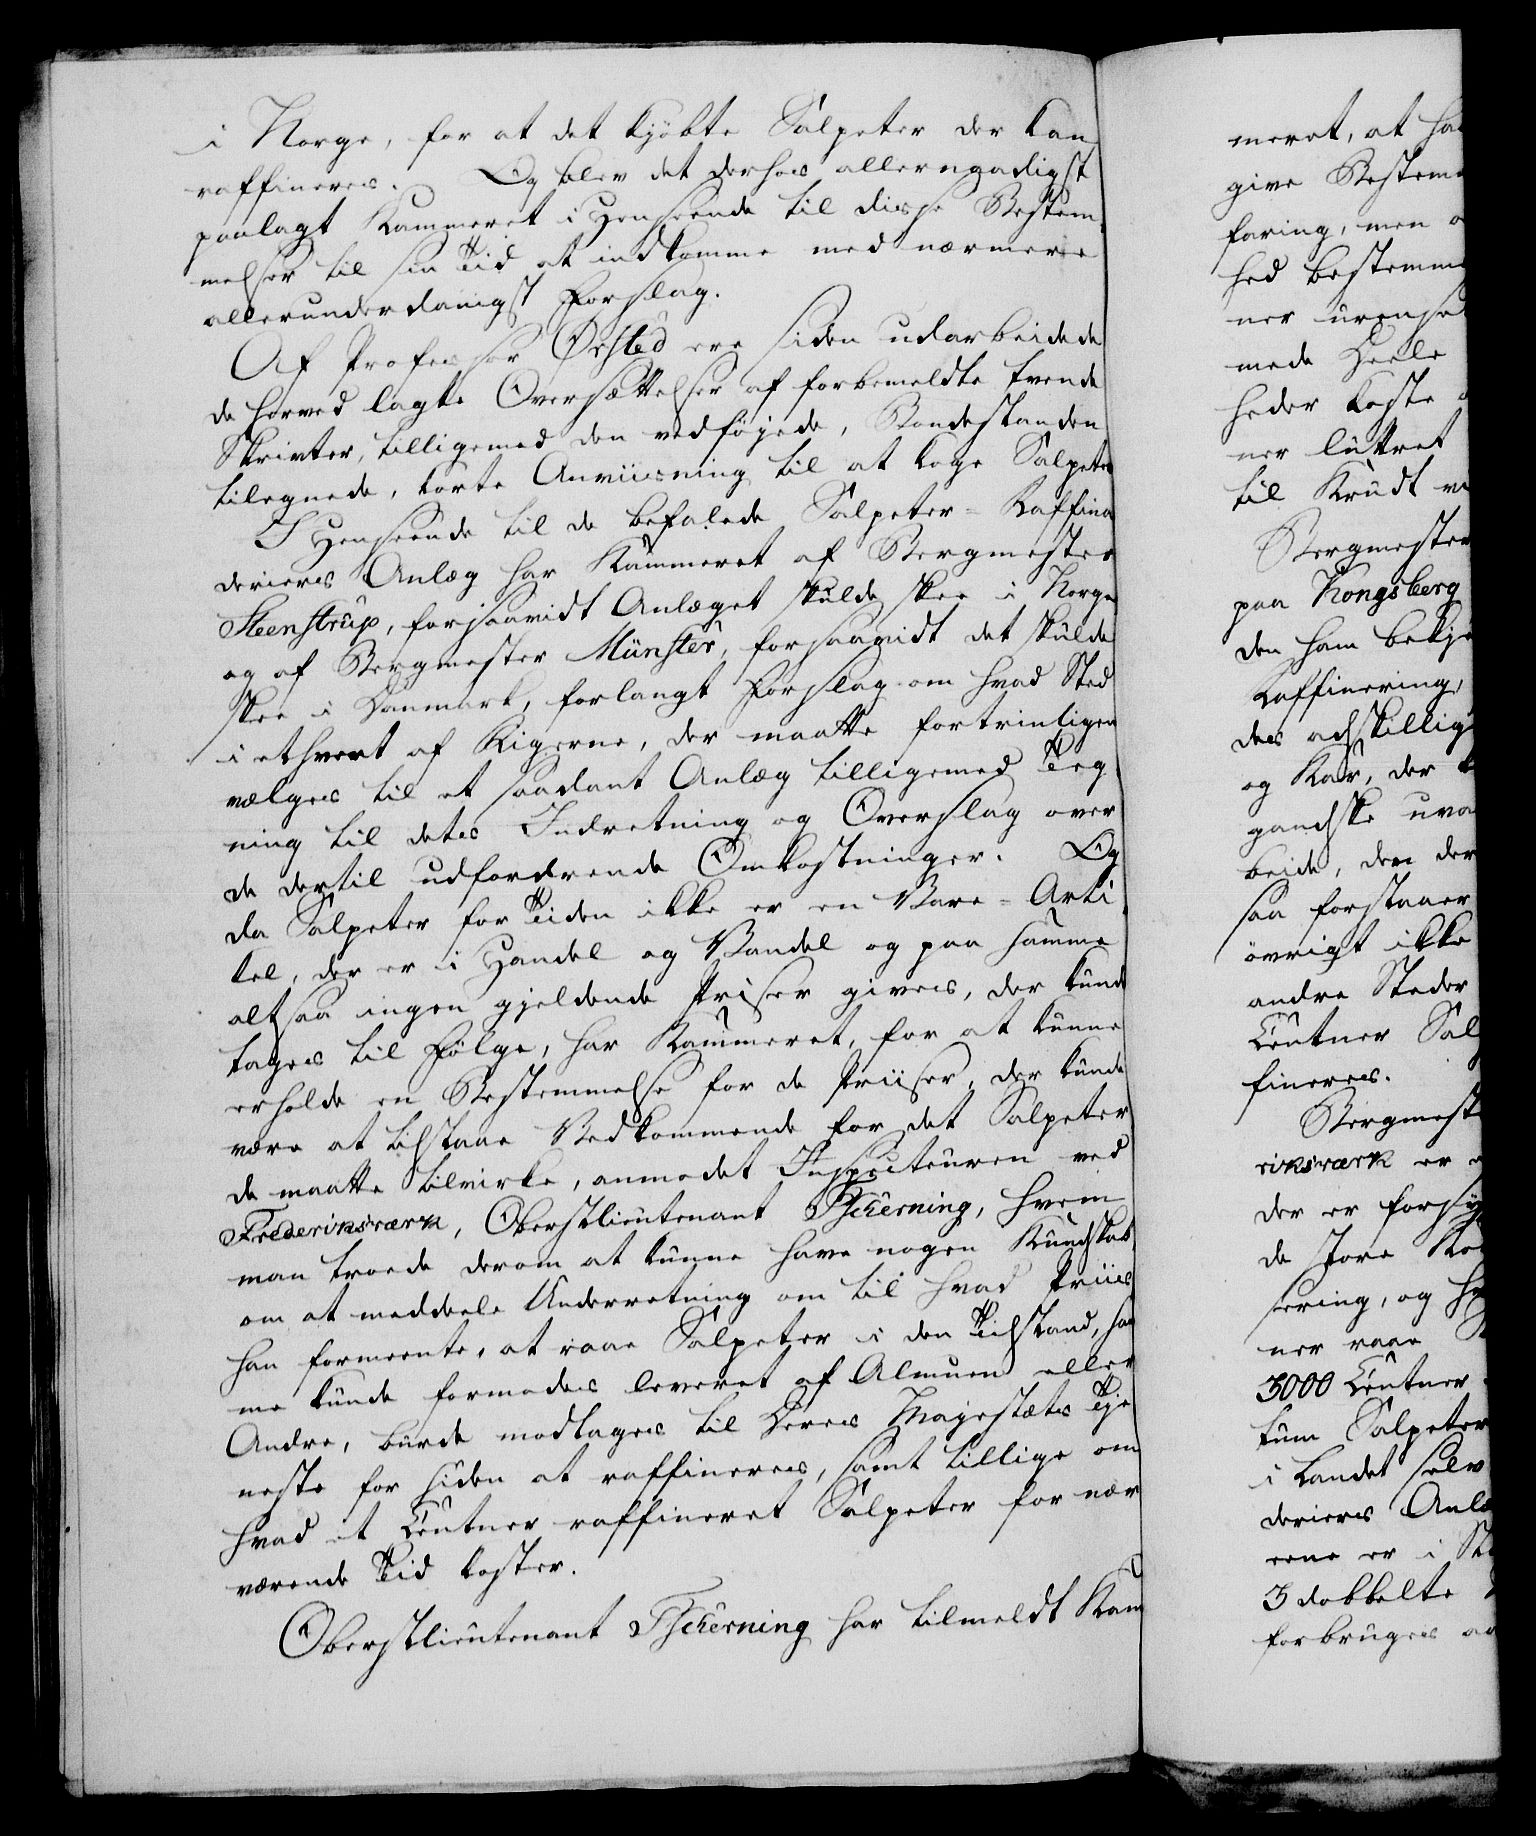 i Norge, for at det kjøbte Salpeter der kan
raffineres. Og blev det derhos allernaadigst
paalagt Kammeret i Henseende til disse Bestem-
melser til sin Tid at indkomme med nærmere
allerunderdanigst Forslag.
Af Professor Ørsted ere siden udarbeidede
de herved lagte Oversættelser af forbemeldte tvende
Skrivter, tilligemed den vedføjede, Bondestanden
tilegnede, korte Anviisning til at koge Salpeter
I Henseende til de befalede Salpeter-Raffina
derieres Anlæg har Kammeret af Bergmester
Steenstrup, forsaavidt Anlæget skulde skee i Norge
og af Bergmester Münster, forsaavidt det skulde
skee i Danmark, forlangt Forslag om hvad Sted
i ethvert af Rigerne, der maatte fortrinligen
vælges til et saadant Anlæg tilligemed Teg-
ning til dets Indretning og Overslag over
de dertil udfordrende Omkostninger. Og
da Salpeter for Tiden ikke er en Vare-Arti
kel, der er i Handel og Vandel og paa samme
altsaa ingen gjeldende Priser gives, der kunde
tages til Følge, har Kammeret, for at kunne
erholde en Bestemmelse for de Priiser, der kunde
være at tilstaae Vedkommende for det Salpeter
de maatte tilvirke, anmodet Inspecteuren ved
Frederiksværk, Oberstlieutenant Tscherning, hvem
man troede derom at kunne have nogen Kundskab,
om at meddeele Underretning om til hvad Priis
han formeente, at raae Salpeter i den Tilstand, sam
me kunde formodes leveret af Almuen eller
Andre, burde modtages til Deres Majestæts Tje
neste for siden at raffineres, samt tillige om
hvad et Centner raffineret Salpeter for nær
værende Tid koster.
Oberstlieutenant Tscherning har tilmeldt Kam
meret, at
give
faring, men
hed
ner
mede Deele
heder koste
ner luttret
til Krudt
Bergmester
paa Kongsberg
den ham
Raffinering,
des adskillige
og Kar, der
gandske
beide, den der
saa forstaaer
øvrigt ikke
andre Steder
Centner
fineres.
riksværk er
der er
de store
sering, og
ner raae
3000 Centner
tum Salpeter
i Landet selv
derieres
eene er i
3 dobbelte
forbruges